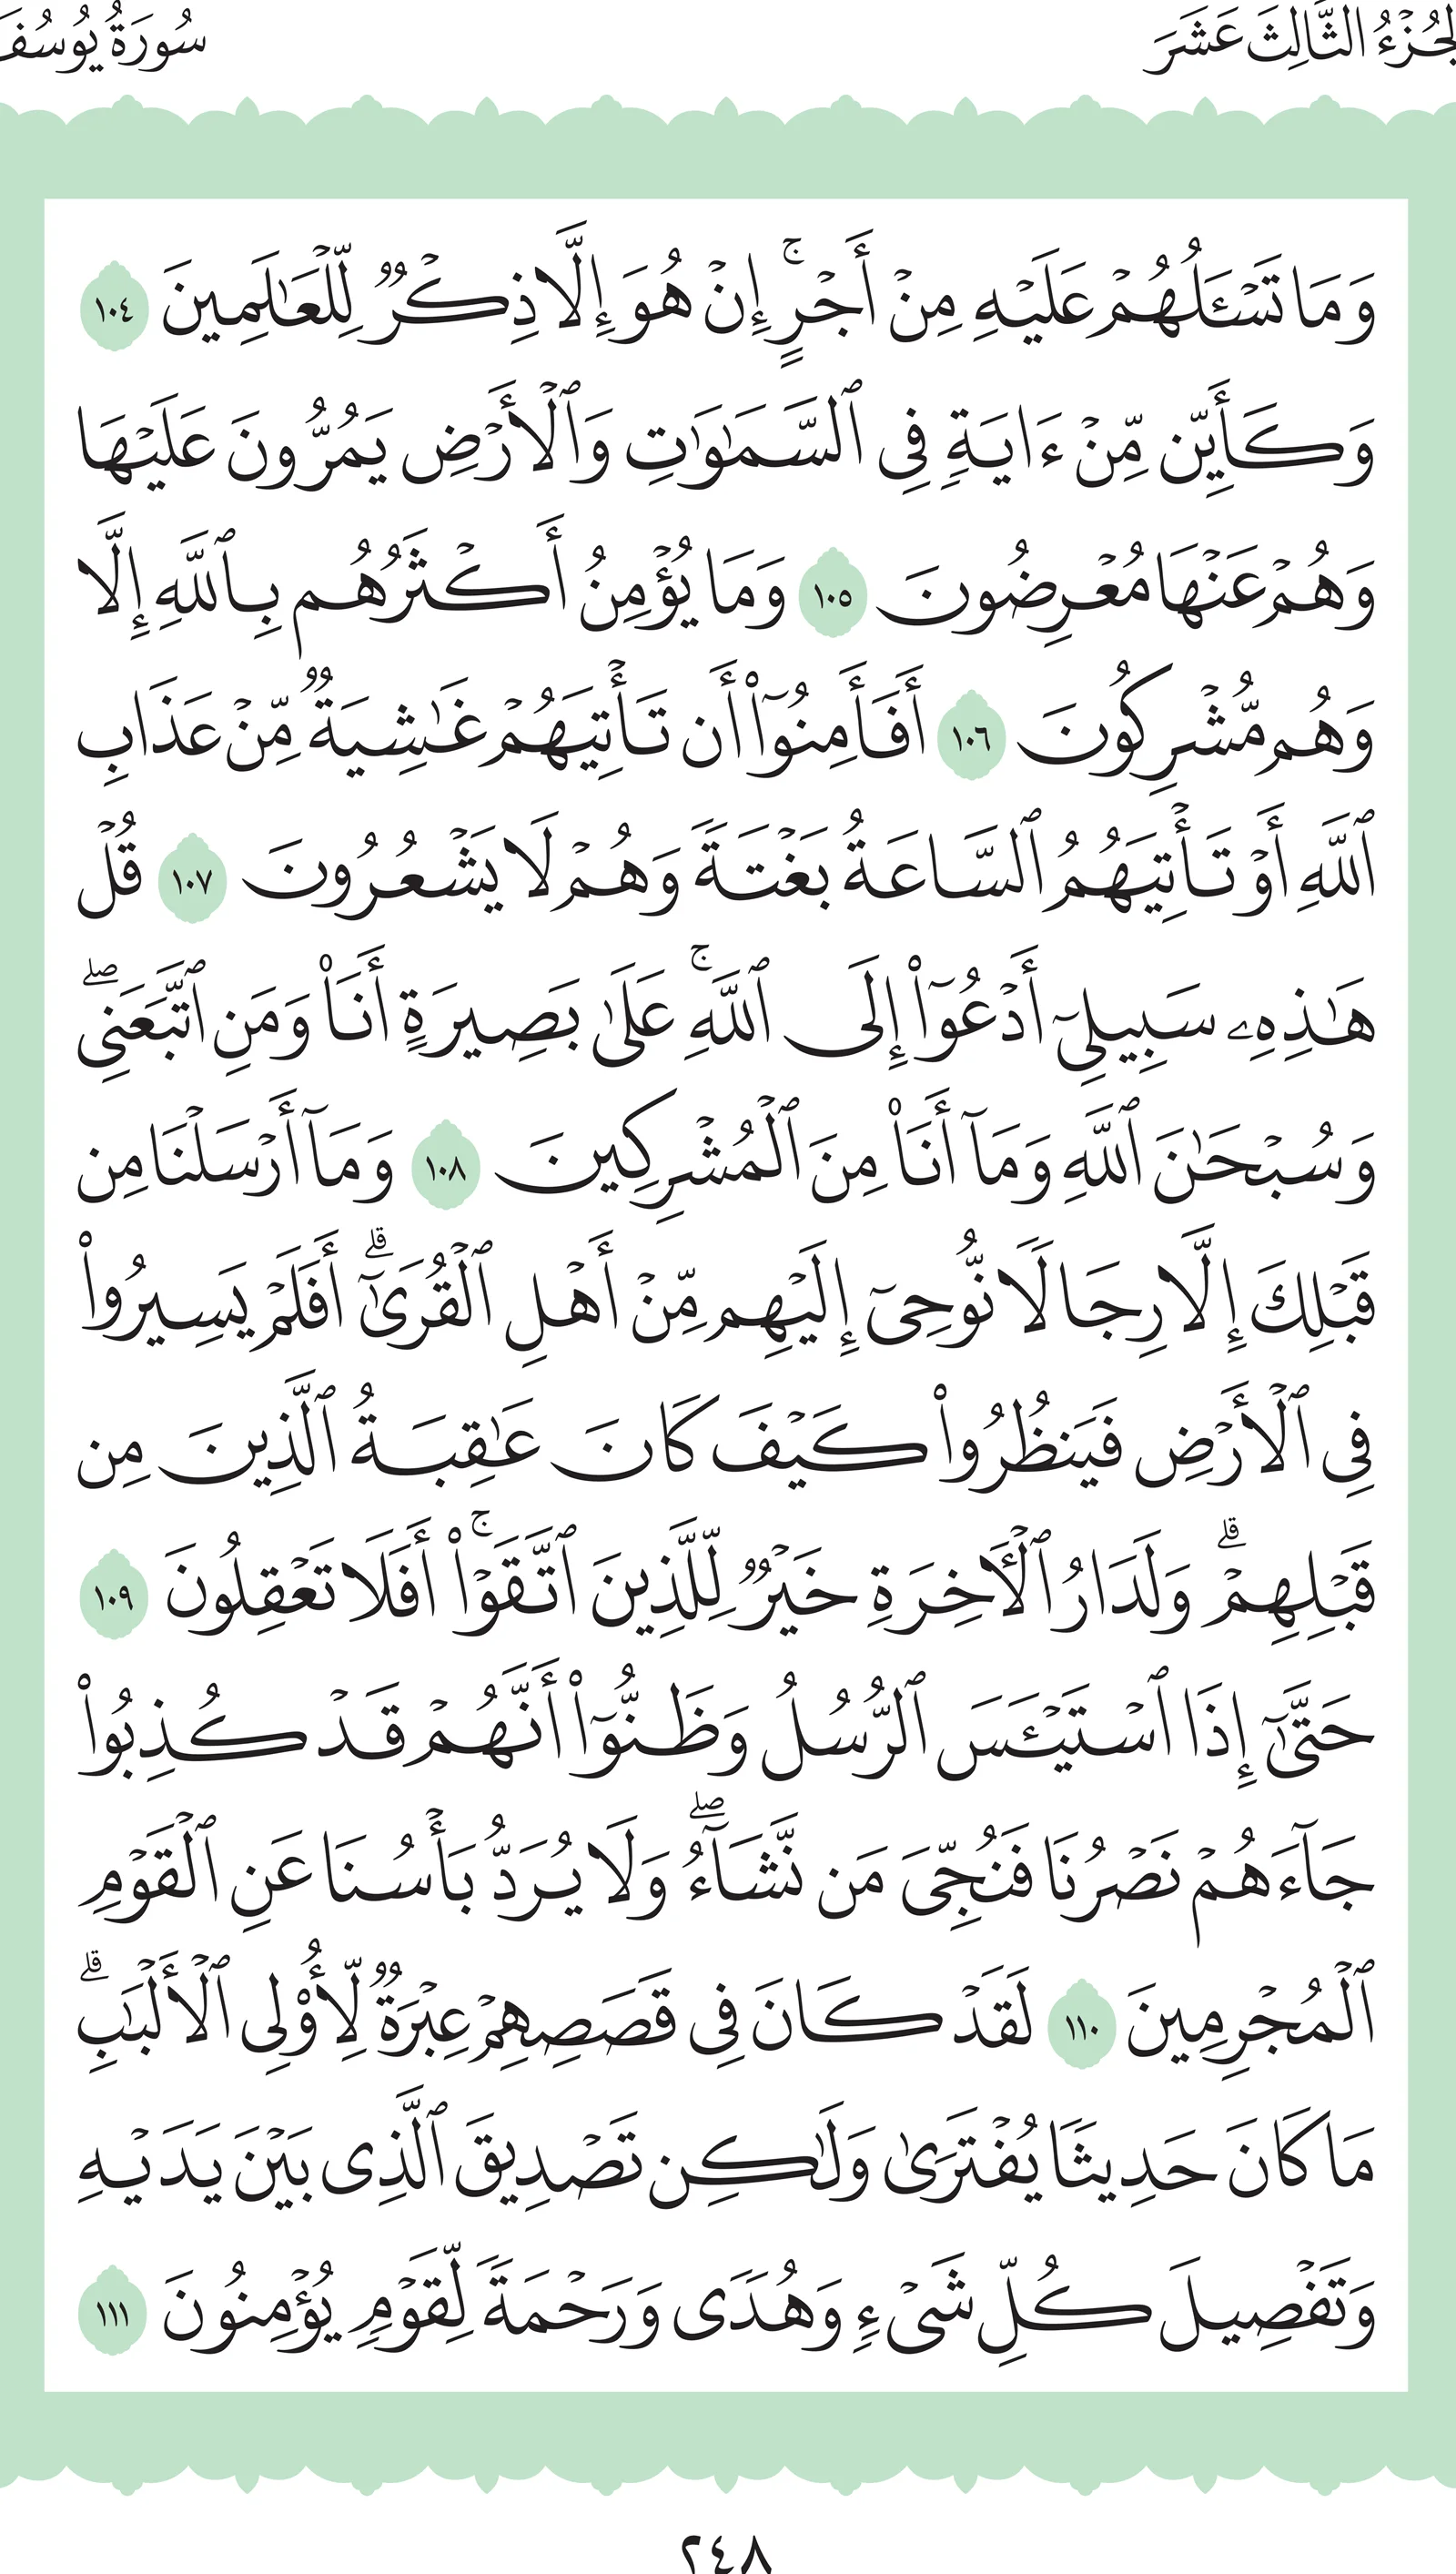 الجُزْءُ الثَّالِثَ عَشَرَ سُورَةُ يُوسُفَ
وَمَا تَسْـَٔلُهُمْ عَلَيْهِ مِنْ أَجْرٍ ۚ إِنْ هُوَ إِلَّا ذِكْرٌ لِّلْعَٰلَمِينَ ١٠٤
وَكَأَيِّن مِّنْ ءَايَةٍ فِى ٱلسَّمَٰوَٰتِ وَٱلْأَرْضِ يَمُرُّونَ عَلَيْهَا
وَهُمْ عَنْهَا مُعْرِضُونَ ١٠٥ وَمَا يُؤْمِنُ أَكْثَرُهُم بِٱللَّهِ إِلَّا
وَهُم مُّشْرِكُونَ ١٠٦ أَفَأَمِنُوٓا۟ أَن تَأْتِيَهُمْ غَٰشِيَةٌ مِّنْ عَذَابِ
ٱللَّهِ أَوْ تَأْتِيَهُمُ ٱلسَّاعَةُ بَغْتَةً وَهُمْ لَا يَشْعُرُونَ ١٠٧ قُلْ
هَٰذِهِۦ سَبِيلِىٓ أَدْعُوٓا۟ إِلَى ٱللَّهِ ۚ عَلَىٰ بَصِيرَةٍ أَنَا۠ وَمَنِ ٱتَّبَعَنِى ۖ
وَسُبْحَٰنَ ٱللَّهِ وَمَآ أَنَا۠ مِنَ ٱلْمُشْرِكِينَ ١٠٨ وَمَآ أَرْسَلْنَا مِن
قَبْلِكَ إِلَّا رِجَالًا نُّوحِىٓ إِلَيْهِم مِّنْ أَهْلِ ٱلْقُرَىٰٓ ۗ أَفَلَمْ يَسِيرُوا۟
فِى ٱلْأَرْضِ فَيَنظُرُوا۟ كَيْفَ كَانَ عَٰقِبَةُ ٱلَّذِينَ مِن
قَبْلِهِمْ ۗ وَلَدَارُ ٱلْـَٔاخِرَةِ خَيْرٌ لِّلَّذِينَ ٱتَّقَوْا۟ ۚ أَفَلَا تَعْقِلُونَ ١٠٩
حَتَّىٰٓ إِذَا ٱسْتَيْـَٔسَ ٱلرُّسُلُ وَظَنُّوٓا۟ أَنَّهُمْ قَدْ كُذِبُوا۟
جَآءَهُمْ نَصْرُنَا فَنُجِّىَ مَن نَّشَآءُ ۖ وَلَا يُرَدُّ بَأْسُنَا عَنِ ٱلْقَوْمِ
ٱلْمُجْرِمِينَ ١١٠ لَقَدْ كَانَ فِى قَصَصِهِمْ عِبْرَةٌ لِّأُو۟لِى ٱلْأَلْبَٰبِ ۗ
مَا كَانَ حَدِيثًا يُفْتَرَىٰ وَلَٰكِن تَصْدِيقَ ٱلَّذِى بَيْنَ يَدَيْهِ
وَتَفْصِيلَ كُلِّ شَىْءٍ وَهُدًى وَرَحْمَةً لِّقَوْمٍ يُؤْمِنُونَ ١١١
٢٤٨